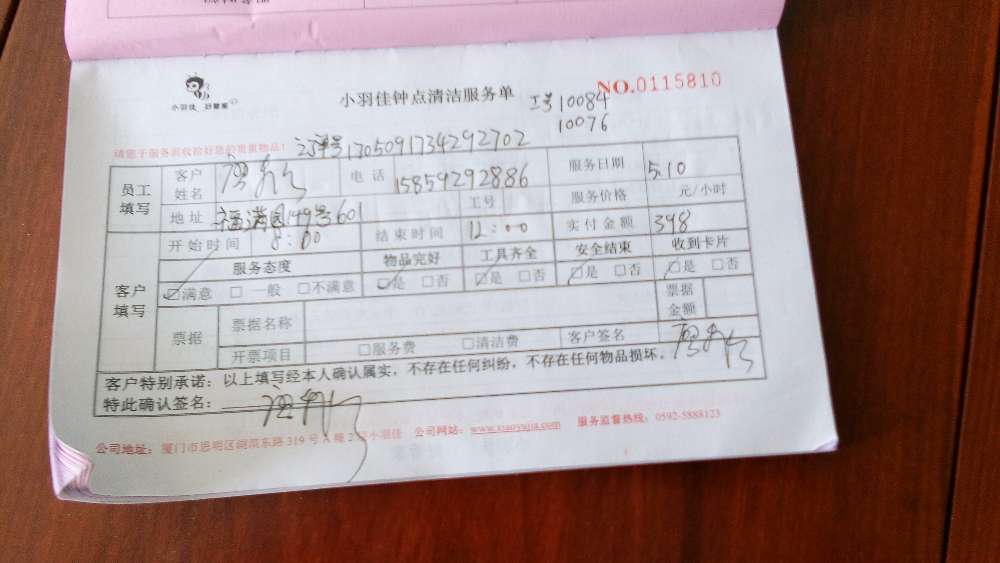 小羽佳 好管家
小羽佳钟点清洁服务单 工号10084 NO.0115810
10076
请您于服务前收拾好您的贵重物品! 订单号1305091734292702
员工填写 客户姓名 电话 15859292886 服务日期 5.10
地址 福满园149号601 工号 服务价格 元/小时
客户填写 开始时间 8:00 结束时间 12:00 实付金额 398
服务态度 物品完好 工具齐全 安全结束 收到卡片
☑满意 □一般 □不满意 ☑是 □否 ☑是 □否 ☑是 □否 ☑是 □否
票据 票据名称 票据金额
开票项目 □服务费 □清洁费 客户签名
客户特别承诺:以上填写经本人确认属实,不存在任何纠纷,不存在任何物品损坏。
特此确认签名:
公司地址:厦门市思明区 东路319号A幢2 小羽佳 公司网站:www.xiaoyujia.com 服务监督热线:0592-5888123